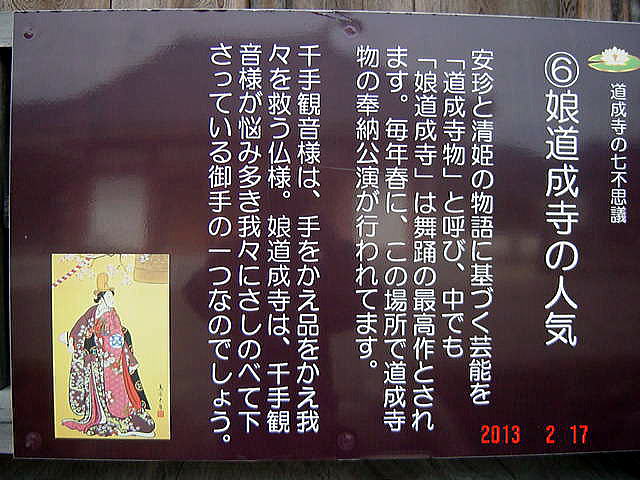 道成寺の七不思議
⑥娘道成寺の人気
安珍と清姫の物語に基づく芸能を
「道成寺物」と呼び、中でも
「娘道成寺」は舞踊の最高作とされ
ます。毎年春に、この場所で道成寺
物の奉納公演が行われてます。
千手観音様は、手をかえ品をかえ我
々を救う仏様。娘道成寺は、千手観
音様が悩み多き我々にさしのべて下
さっている御手の一つなのでしょう。
2013 2 17